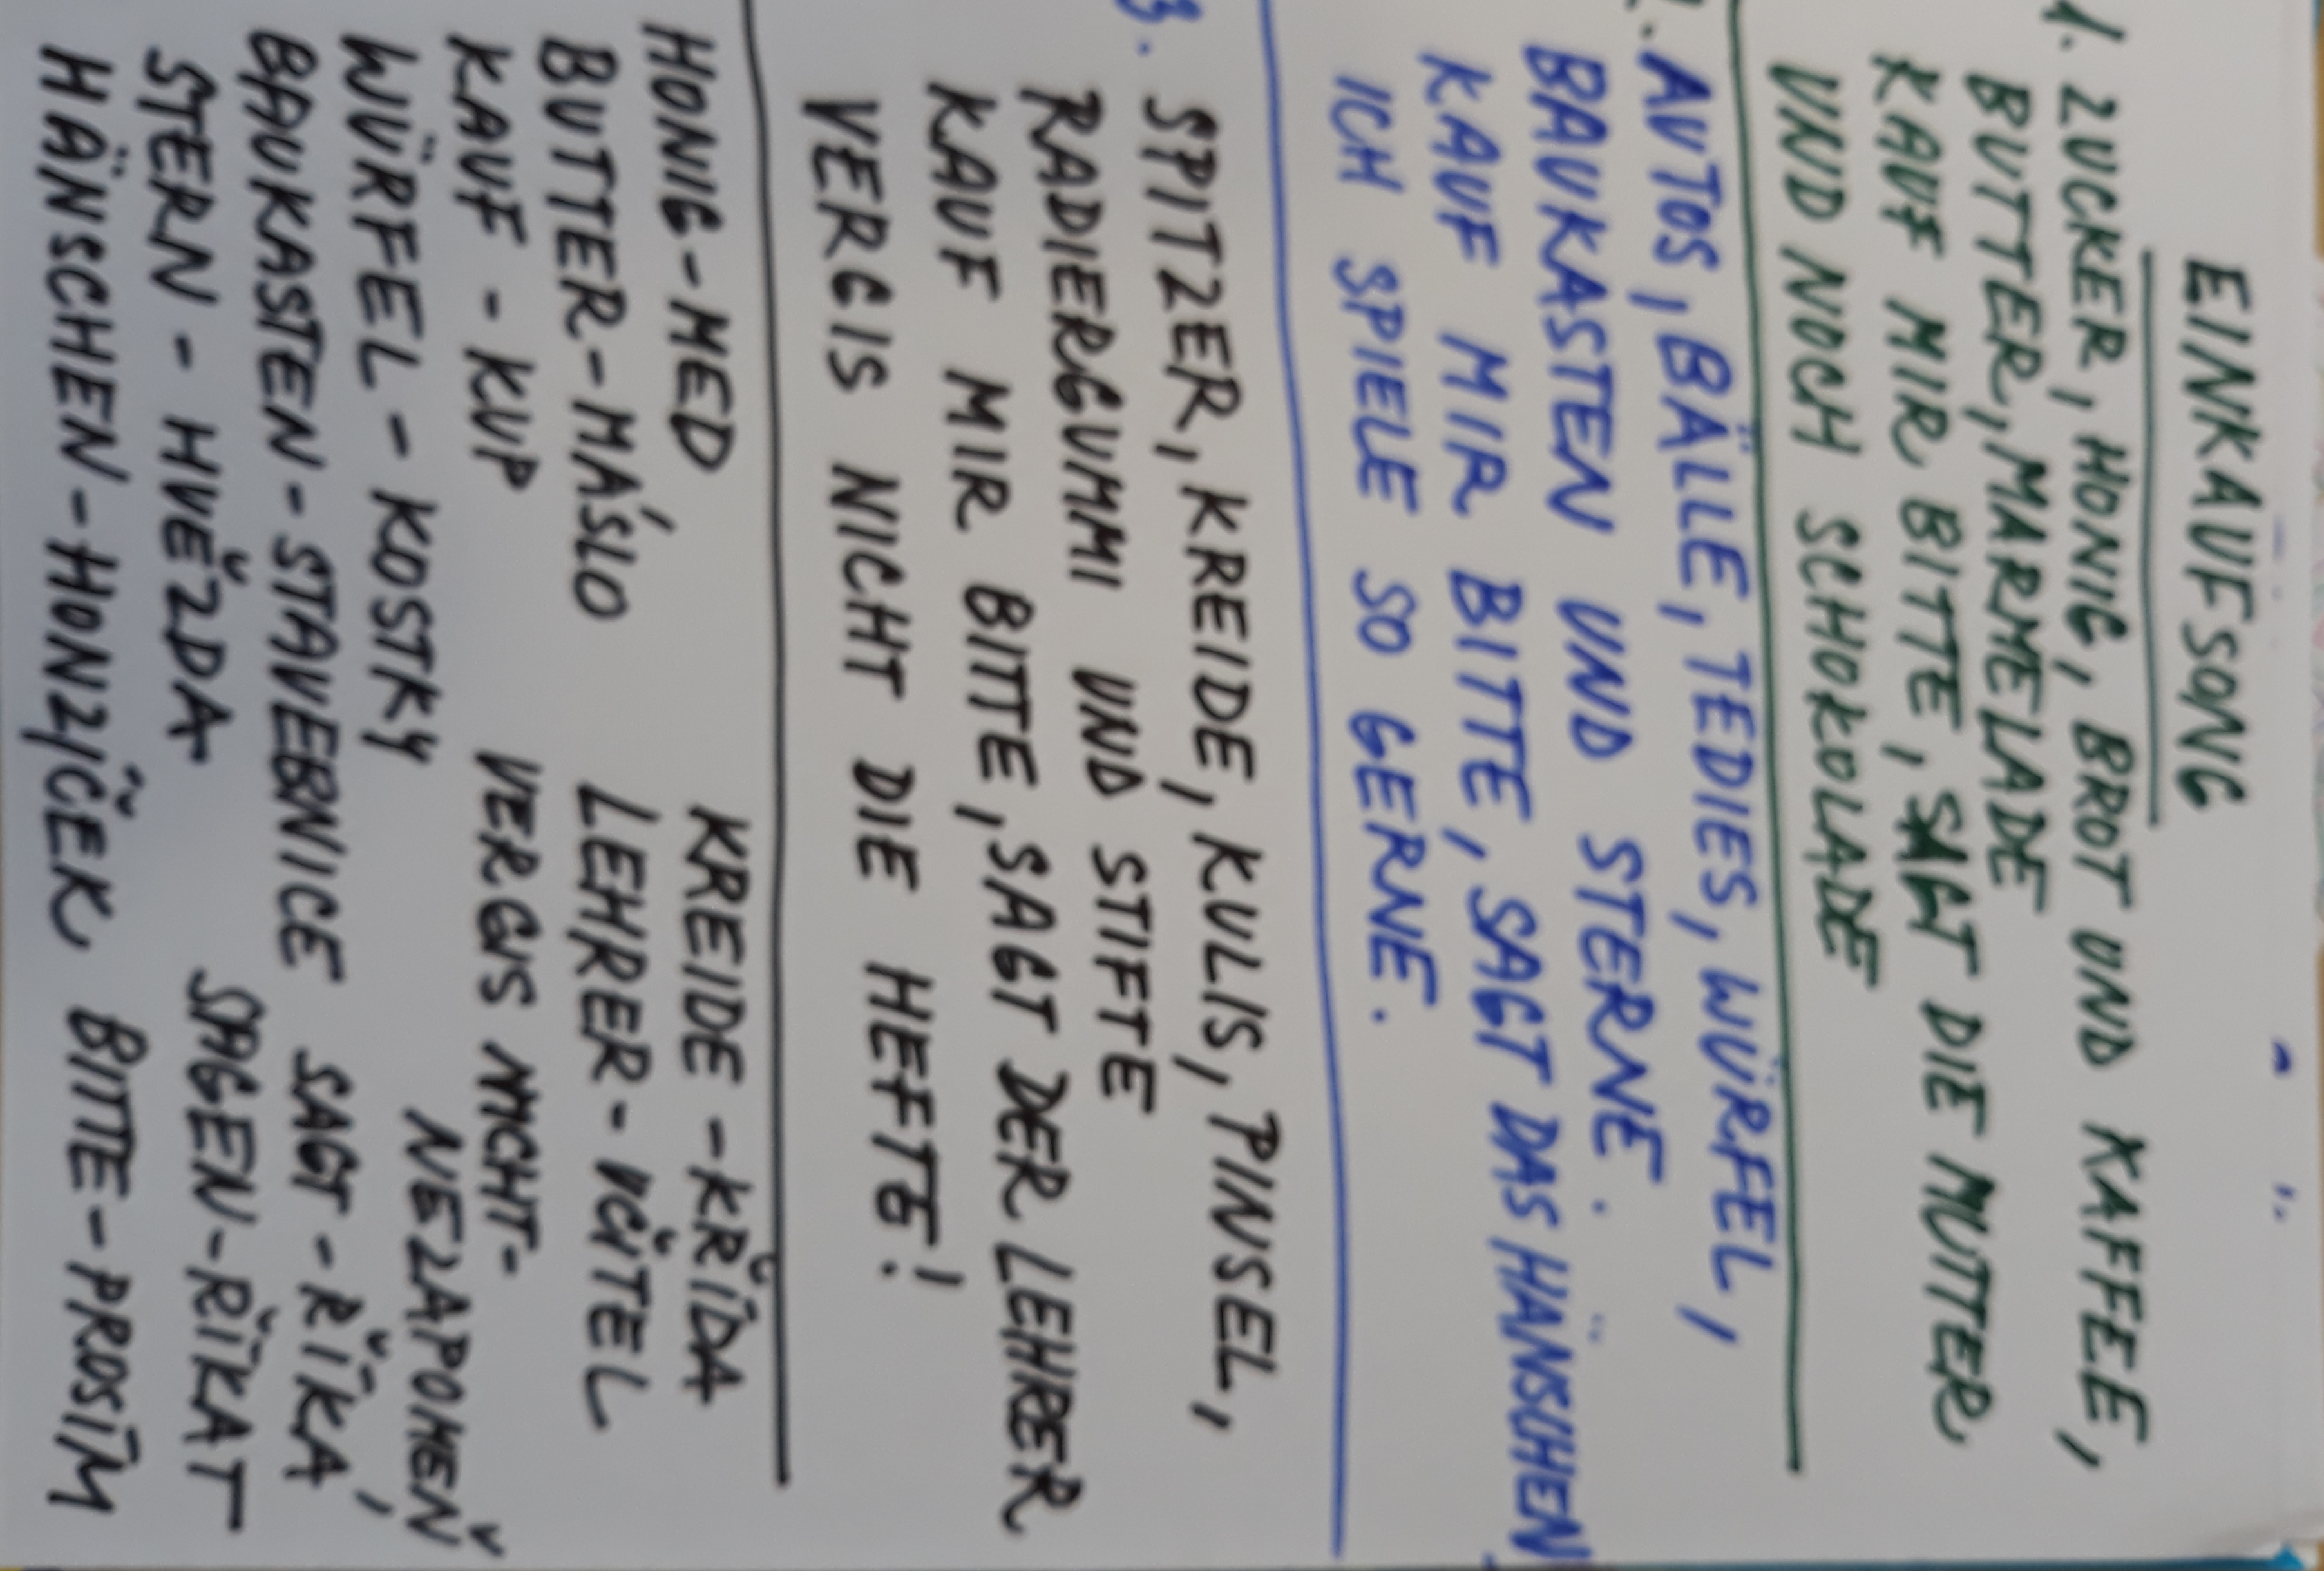 EINKAUFSONG
1. ZUCKER, HONIG, BROT UND KAFFEE,
BUTTER, MARMELADE
KAUF MIR BITTE, SAGT DIE MUTTER
UND NOCH SCHOKOLADE
. AUTOS, BÄLLE, TEDIES, WÜRFEL,
BAUKASTEN UND STERNE.
KAUF MIR BITTE, SAGT DAS HÄNSCHEN
ICH SPIELE SO GERNE.
3. SPITZER, KREIDE, KULIS, PINSEL,
RADIERGUMMI UND STIFTE
KAUF MIR BITTE, SAGT DER LEHRER
VERGIS NICHT DIE HEFTE!
HONIG-MED
BUTTER-MÁSLO
KAUF - KUP
WÜRFEL - KOSTKY
BAUKASTEN - STAVEBNICE
STERN - HVĚZDA
HÄNSCHEN-HONZÍČEK
KREIDE - KŘÍDA
LEHRER - UČITEL
VERGIS NICHT-
NEZAPOMEŇ
SAGT - ŘÍKÁ
SAGEN-ŘÍKAT
BITTE-PROSÍM